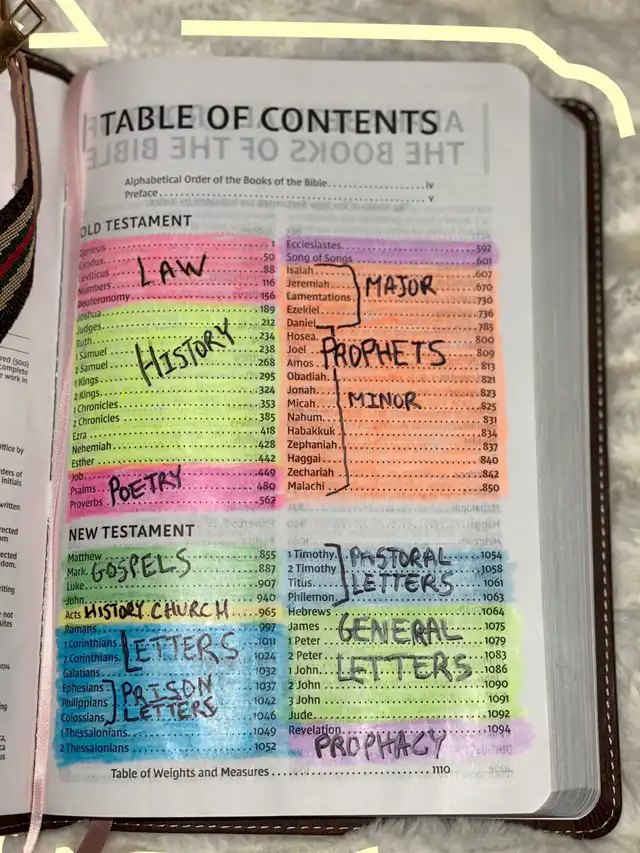 TABLE OF CONTENTS
THE BOOKS OF THE BIBLE
Alphabetical Order of the Books of the Bible iv
Preface v
OLD TESTAMENT
Genesis 1
Exodus 50
Leviticus 88
Numbers 116
Deuteronomy 156
LAW
Joshua 189
Judges 212
Ruth 234
1 Samuel 238
2 Samuel 268
1 Kings 295
2 Kings 324
1 Chronicles 353
2 Chronicles 385
Ezra 418
Nehemiah 428
Esther 442
HISTORY
Job 449
Psalms 480
Proverbs 562
POETRY
Ecclesiastes 592
Song of Songs 601
Isaiah 607
Jeremiah 670
Lamentations 730
Ezekiel 736
Daniel 785
MAJOR
PROPHETS
Hosea 800
Joel 809
Amos 813
Obadiah 821
Jonah 823
Micah 825
Nahum 831
Habakkuk 834
Zephaniah 837
Haggai 840
Zechariah 842
Malachi 850
MINOR
NEW TESTAMENT
Matthew 855
Mark 887
Luke 907
John 940
GOSPELS
Acts 965
HISTORY CHURCH
Romans 997
1 Corinthians 1011
2 Corinthians 1024
Galatians 1032
LETTERS
Ephesians 1037
Philippians 1042
Colossians 1046
PRISON
LETTERS
1 Thessalonians 1049
2 Thessalonians 1052
1 Timothy 1054
2 Timothy 1058
Titus 1061
Philemon 1063
PASTORAL
LETTERS
Hebrews 1064
James 1075
1 Peter 1079
2 Peter 1083
1 John 1086
2 John 1090
3 John 1091
Jude 1092
GENERAL
LETTERS
Revelation 1094
PROPHACY
Table of Weights and Measures 1110